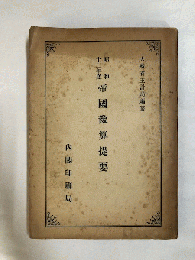 大蔵省主計局編纂
昭和
十二年度
帝國豫算提要
内閣印刷局